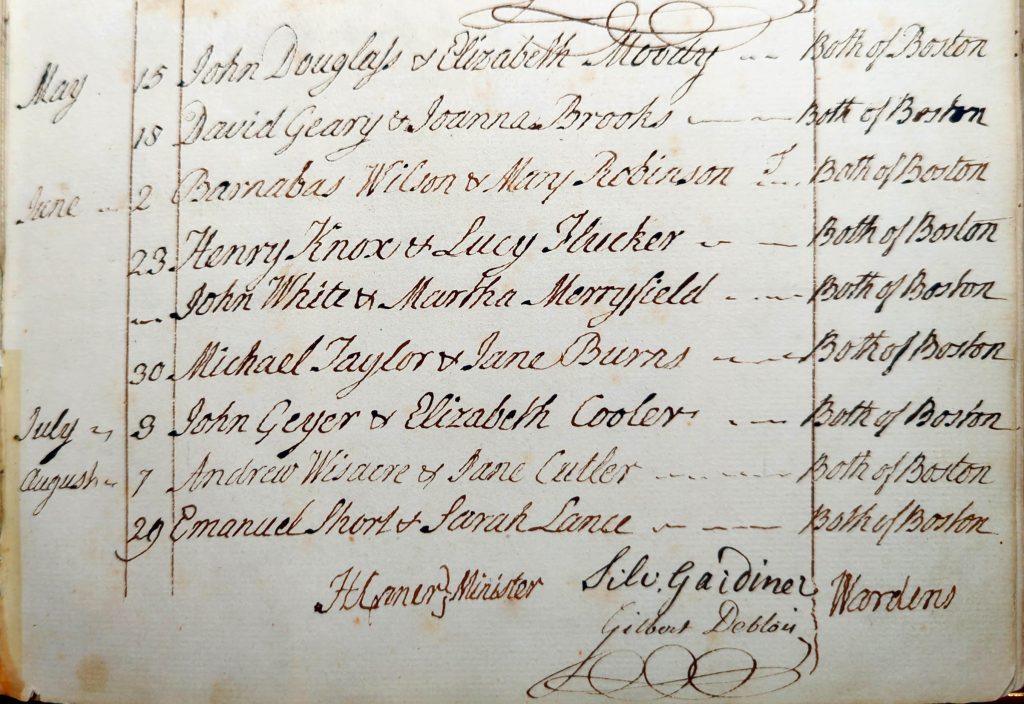 May 15 John Douglaſs & Elizabeth Moody Both of Boston
18 David Geary & Joanna Brooks Both of Boston
June 2 Barnabas Wilson & Mary Robinson J Both of Boston
23 Henry Knox & Lucy Flucker Both of Boston
John White & Martha Merryfield Both of Boston
30 Michael Taylor & Jane Burns Both of Boston
July 3 John Geyer & Elizabeth Cooler Both of Boston
August 7 Andrew Wisacre & Jane Cutler Both of Boston
29 Emanuel Short & Sarah Lance Both of Boston
H Caner} Minister Silv. Gardiner } Wardens
Gilbert Deblois